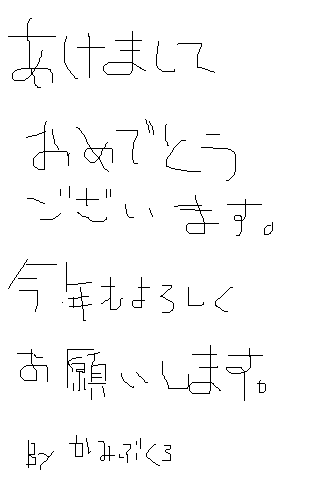 あけまして
おめでとう
ございます。
今年もよろしく
お願いします。
By かみぶくろ